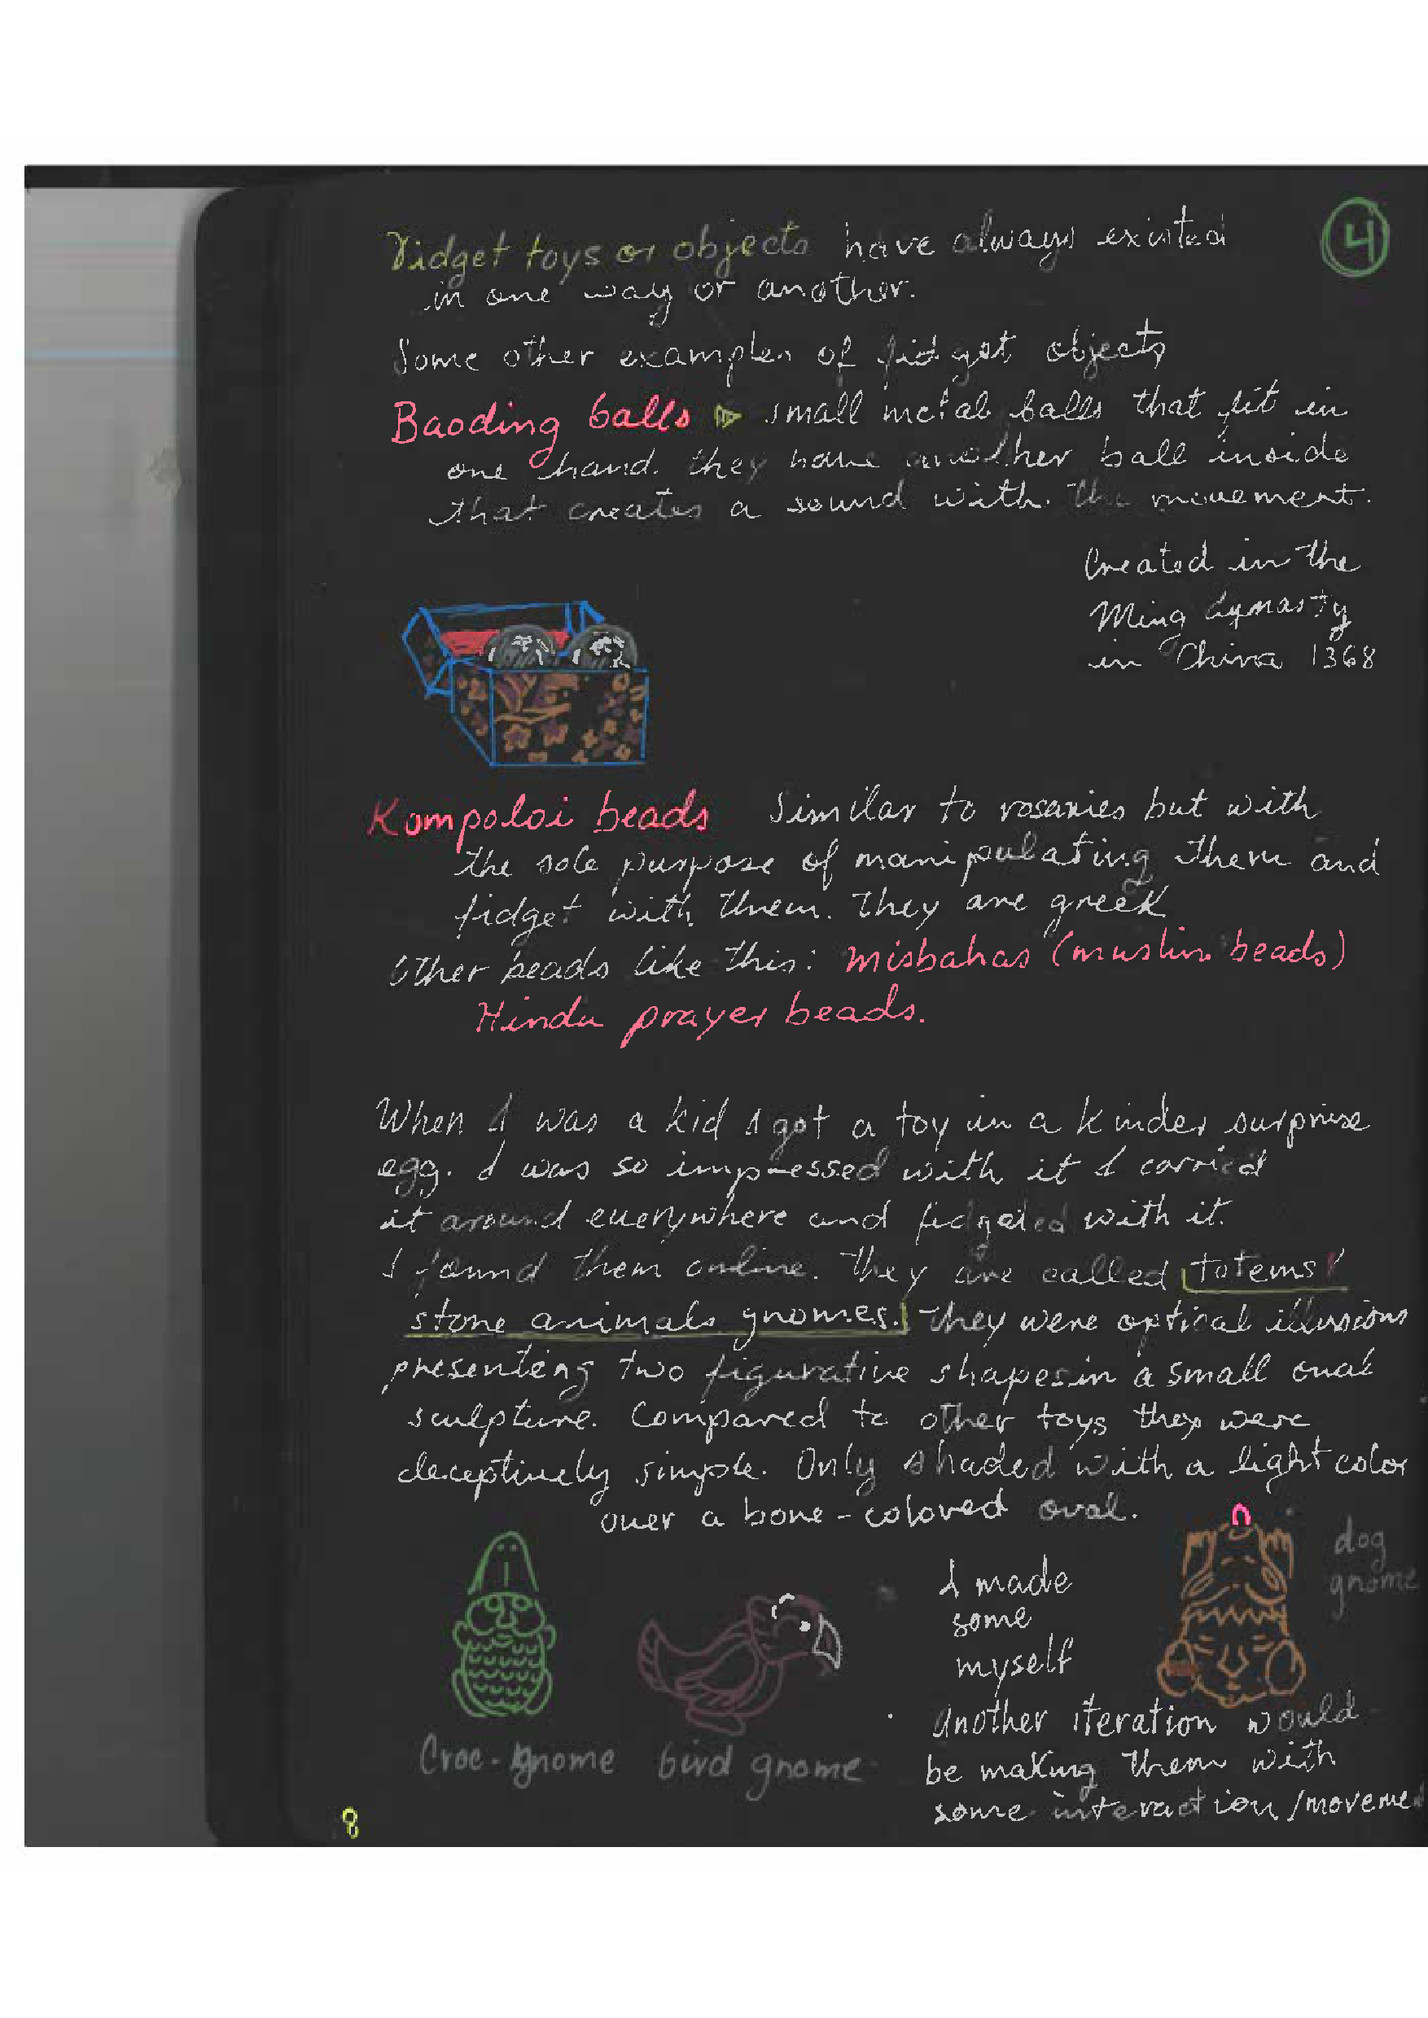 4
Fidget toys or objects have always existed
in one way or another.
Some other examples of fidget objects
Baoding balls ▷ small metal balls that fit in
one hand. they have another ball inside
that creates a sound with the movement.
Created in the
Ming dynasty
in China 1368
Kompoloi beads Similar to rosaries but with
the sole purpose of manipulating them and
fidget with them. They are greek
Other beads like this: Misbahas (muslim beads)
Hindu prayer beads.
When I was a kid I got a toy in a kinder surprise
egg. I was so impressed with it I carried
it around everywhere and fidgeted with it.
I found them online. They are called totems
stone animals gnomes. They were optical illusions
presenting two figurative shapes in a small oval
sculpture. Compared to other toys they were
deceptively simple. Only shaded with a light color
over a bone-colored oval.
dog
gnome
I made
some
myself
Croc-gnome bird gnome
Another iteration would
be making them with
some interaction/moveme
8